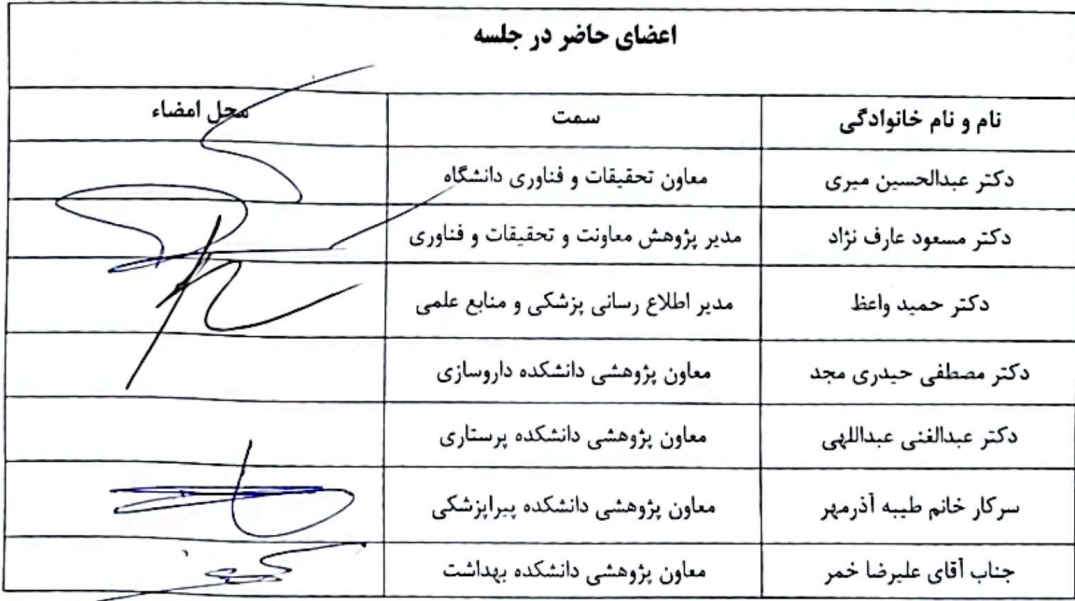 اعضای حاضر در جلسه
نام و نام خانوادگی سمت محل امضاء
دکتر عبدالحسین میری معاون تحقیقات و فناوری دانشگاه
دکتر مسعود عارف نژاد مدیر پژوهش معاونت و تحقیقات و فناوری
دکتر حمید واعظ مدیر اطلاع رسانی پزشکی و منابع علمی
دکتر مصطفی حیدری مجد معاون پژوهشی دانشکده داروسازی
دکتر عبدالغنی عبداللهی معاون پژوهشی دانشکده پرستاری
سرکار خانم طیبه آذرمهر معاون پژوهشی دانشکده پیراپزشکی
جناب آقای علیرضا خمر معاون پژوهشی دانشکده بهداشت